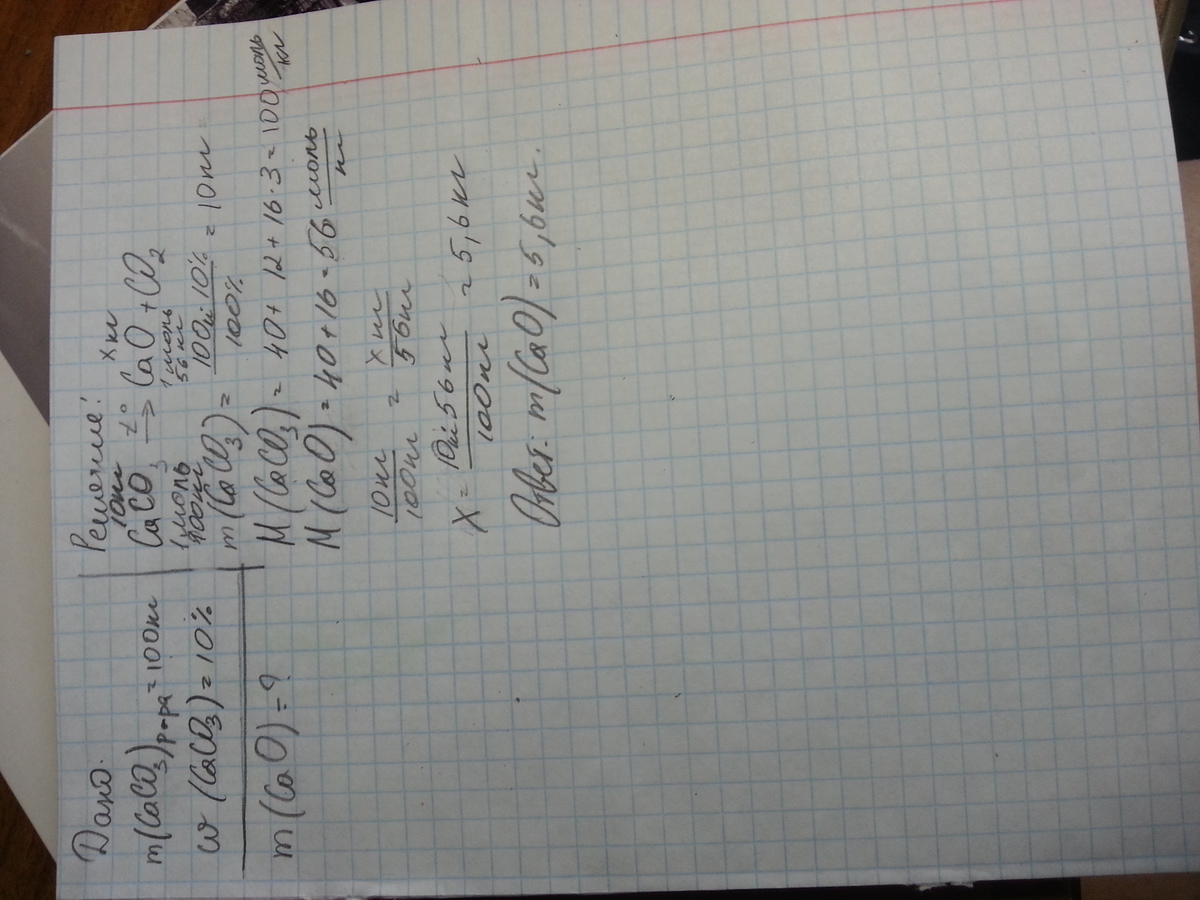 Дано:
m(CaCO₃)р-ра = 100кг
w(CaCO₃) = 10%
m(CaO) = ?
Решение:
10кг xкг
CaCO₃ t°→ CaO + CO₂
1моль 1моль
100кг 56кг
m(CaCO₃) = 100кг·10%/100% = 10кг
M(CaCO₃) = 40 + 12 + 16·3 = 100 моль/кг
M(CaO) = 40 + 16 = 56 моль/кг
10кг/100кг = xкг/56кг
X = 10кг·56кг/100кг = 5,6кг
Ответ: m(CaO) = 5,6кг.